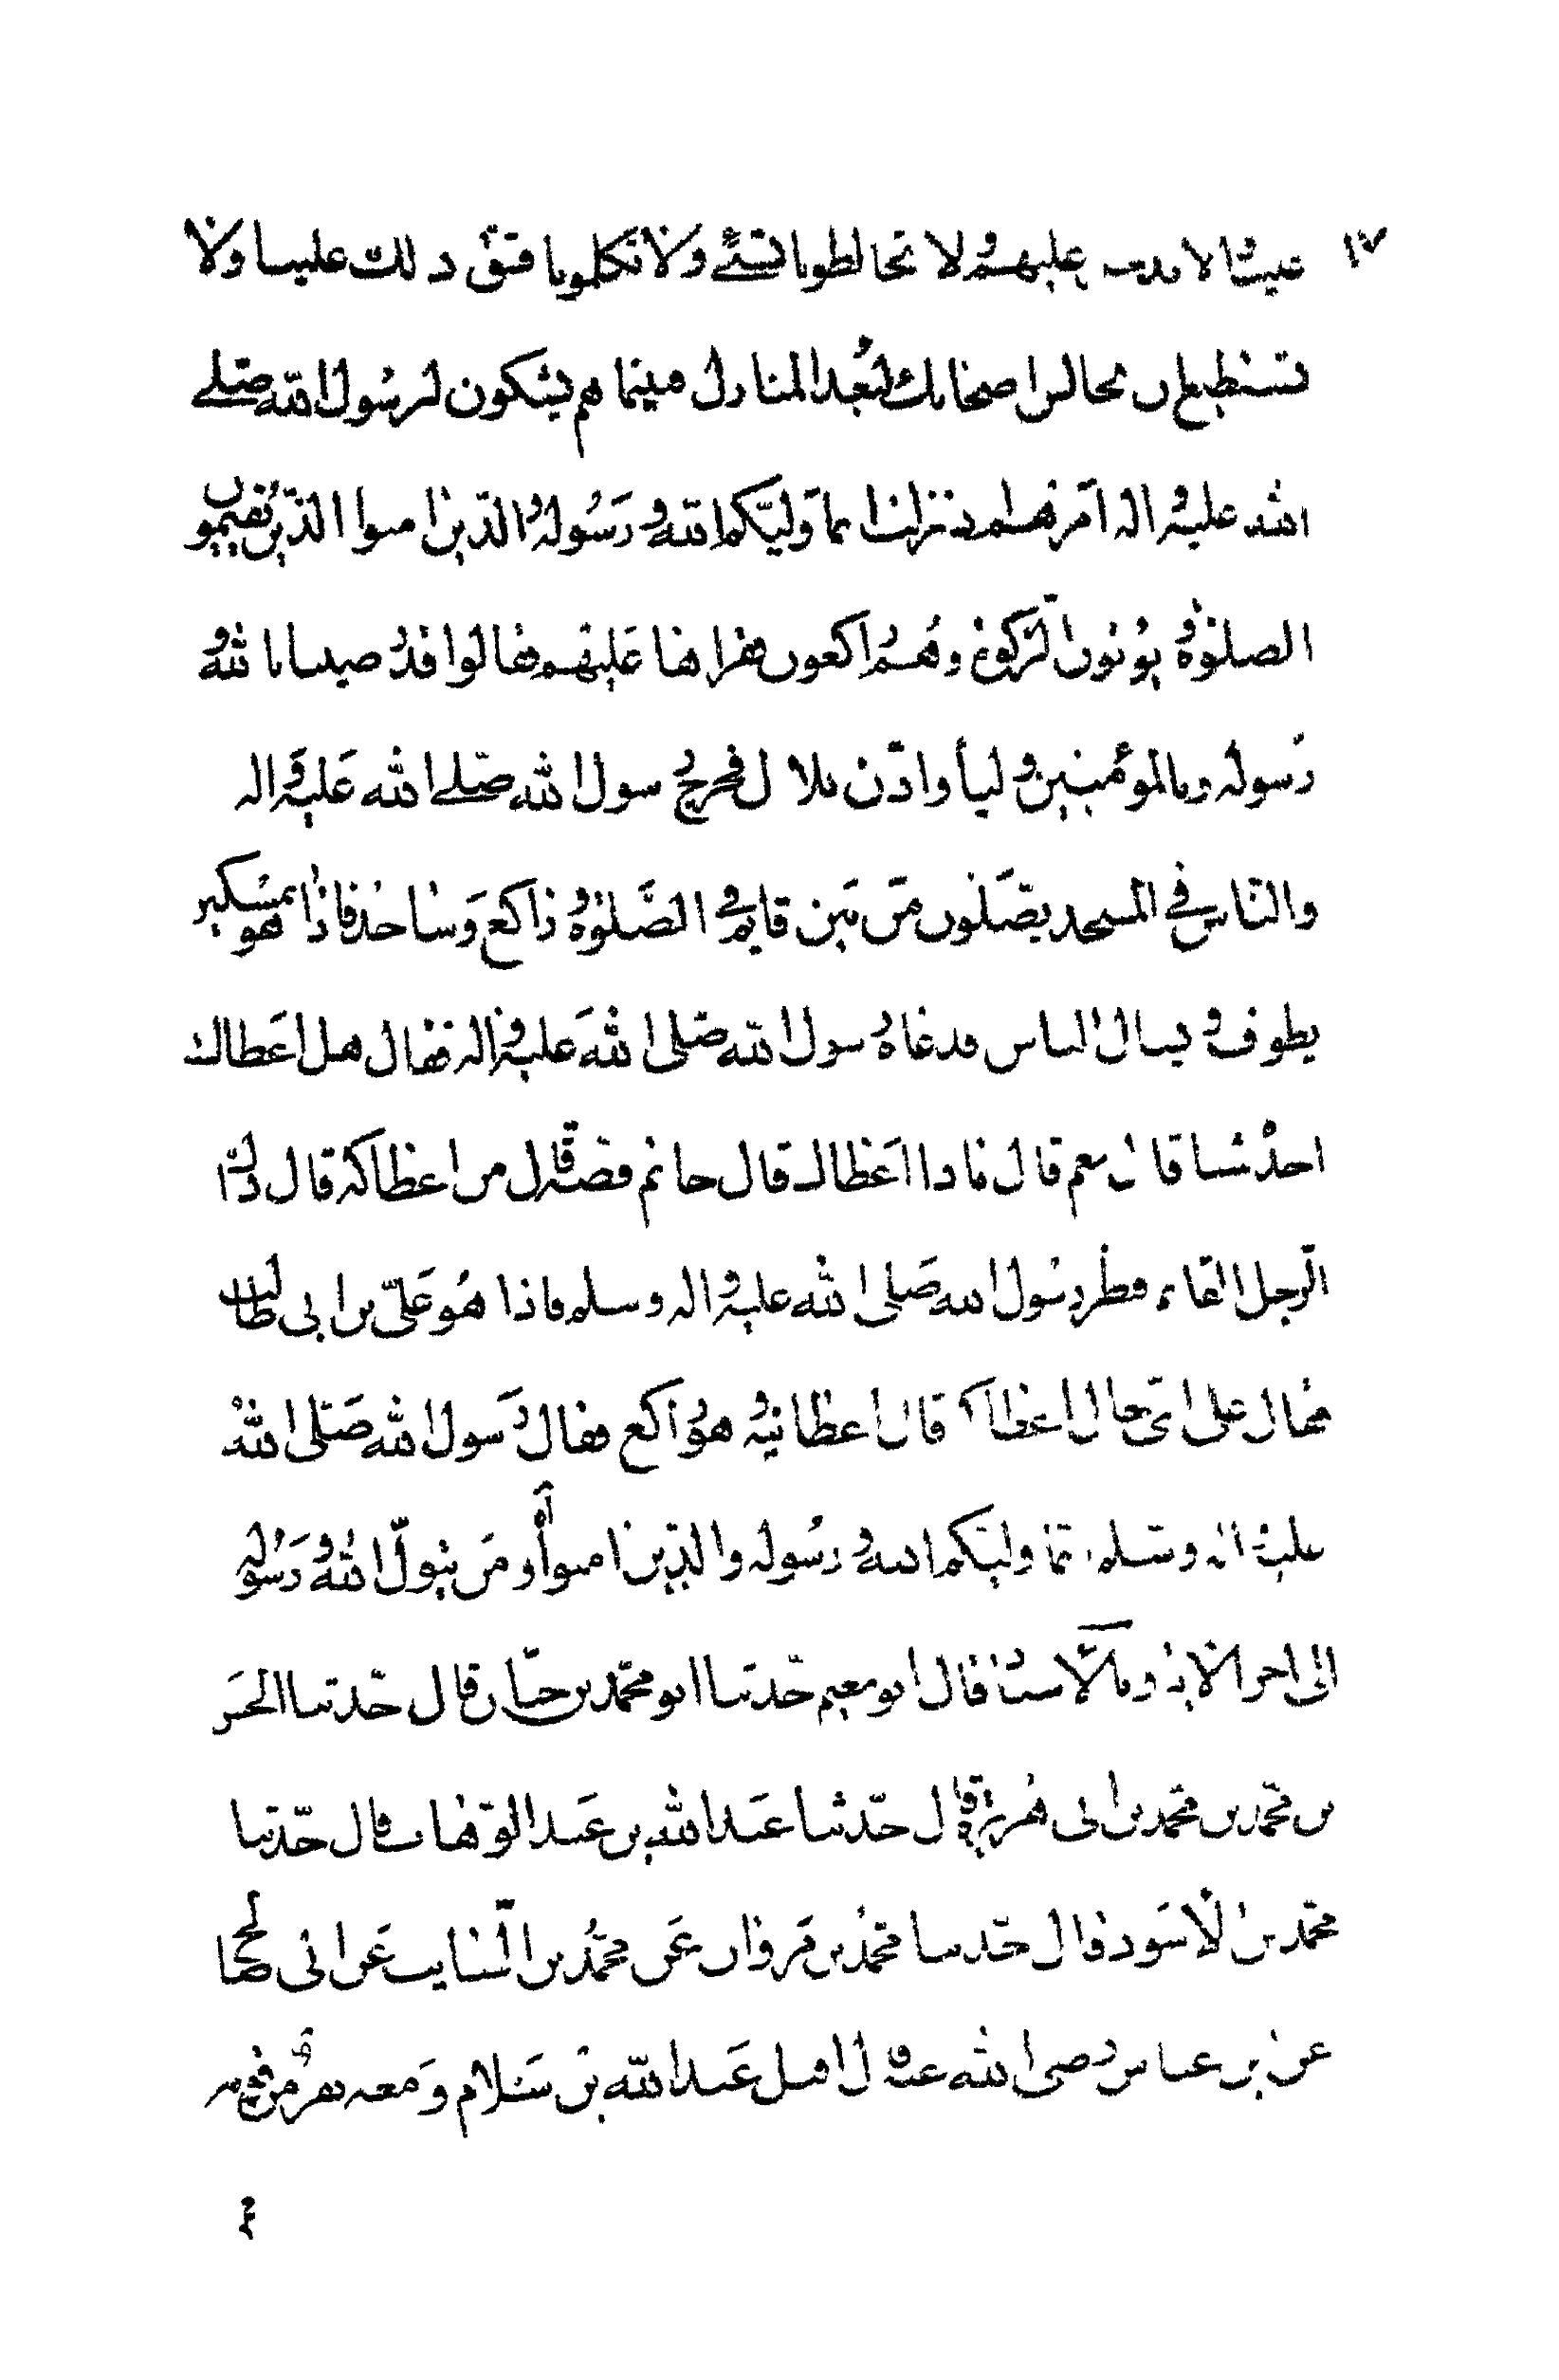 ١٧
عليهم و لا تخالطونا بشئ ولا تكلمونا فشق ذلك علينا ولا
نستطيع ان نجالس اصحابك لبعد المنازل فبينما هم يشكون لرسول الله صلى
الله عليه و اله امرهم اذ نزلت انما وليكم الله و رسوله و الذين امنوا الذين يقيمون
الصلوة و يؤتون الزكوة و هم راكعون فقراها عليهم فقالوا قد رضينا بالله و
رسوله وبالمؤمنين و ليا و اذن بلال فخرج رسول الله صلى الله عليه و اله
والناس في المسجد يصلون من بين قايم في الصلوة و راكع و ساجد فاذا هو بمسكين
يطوف و يسال الناس فدعاه رسول الله صلى الله عليه و اله فقال هل اعطاك
احد شيئا قال نعم قال ماذا اعطاك قال خاتم فضة قال من اعطاكه قال ذاك
الرجل القائم فنظر رسول الله صلى الله عليه و اله وسلم فاذا هو علي بن ابي طالب
فقال على اي حال اعطاكه قال اعطانيه و هو راكع فقال رسول الله صلى الله
عليه و اله وسلم انما وليكم الله و رسوله والذين امنوا ومن يتول الله و رسوله
الى اخر الاية وبالاسناد قال ابو نعيم حدثنا ابو محمد بن حيان قال حدثنا الحسن
بن محمد بن محمد بن ابي هريرة قال حدثنا عبد الله بن عبد الوهاب قال حدثنا
محمد بن الاسود قال حدثنا محمد بن مروان عن محمد بن السايب عن ابي صالح
عن بن عباس رضى الله عنه قال اقبل عبد الله بن سلام و معه نفر من قومه